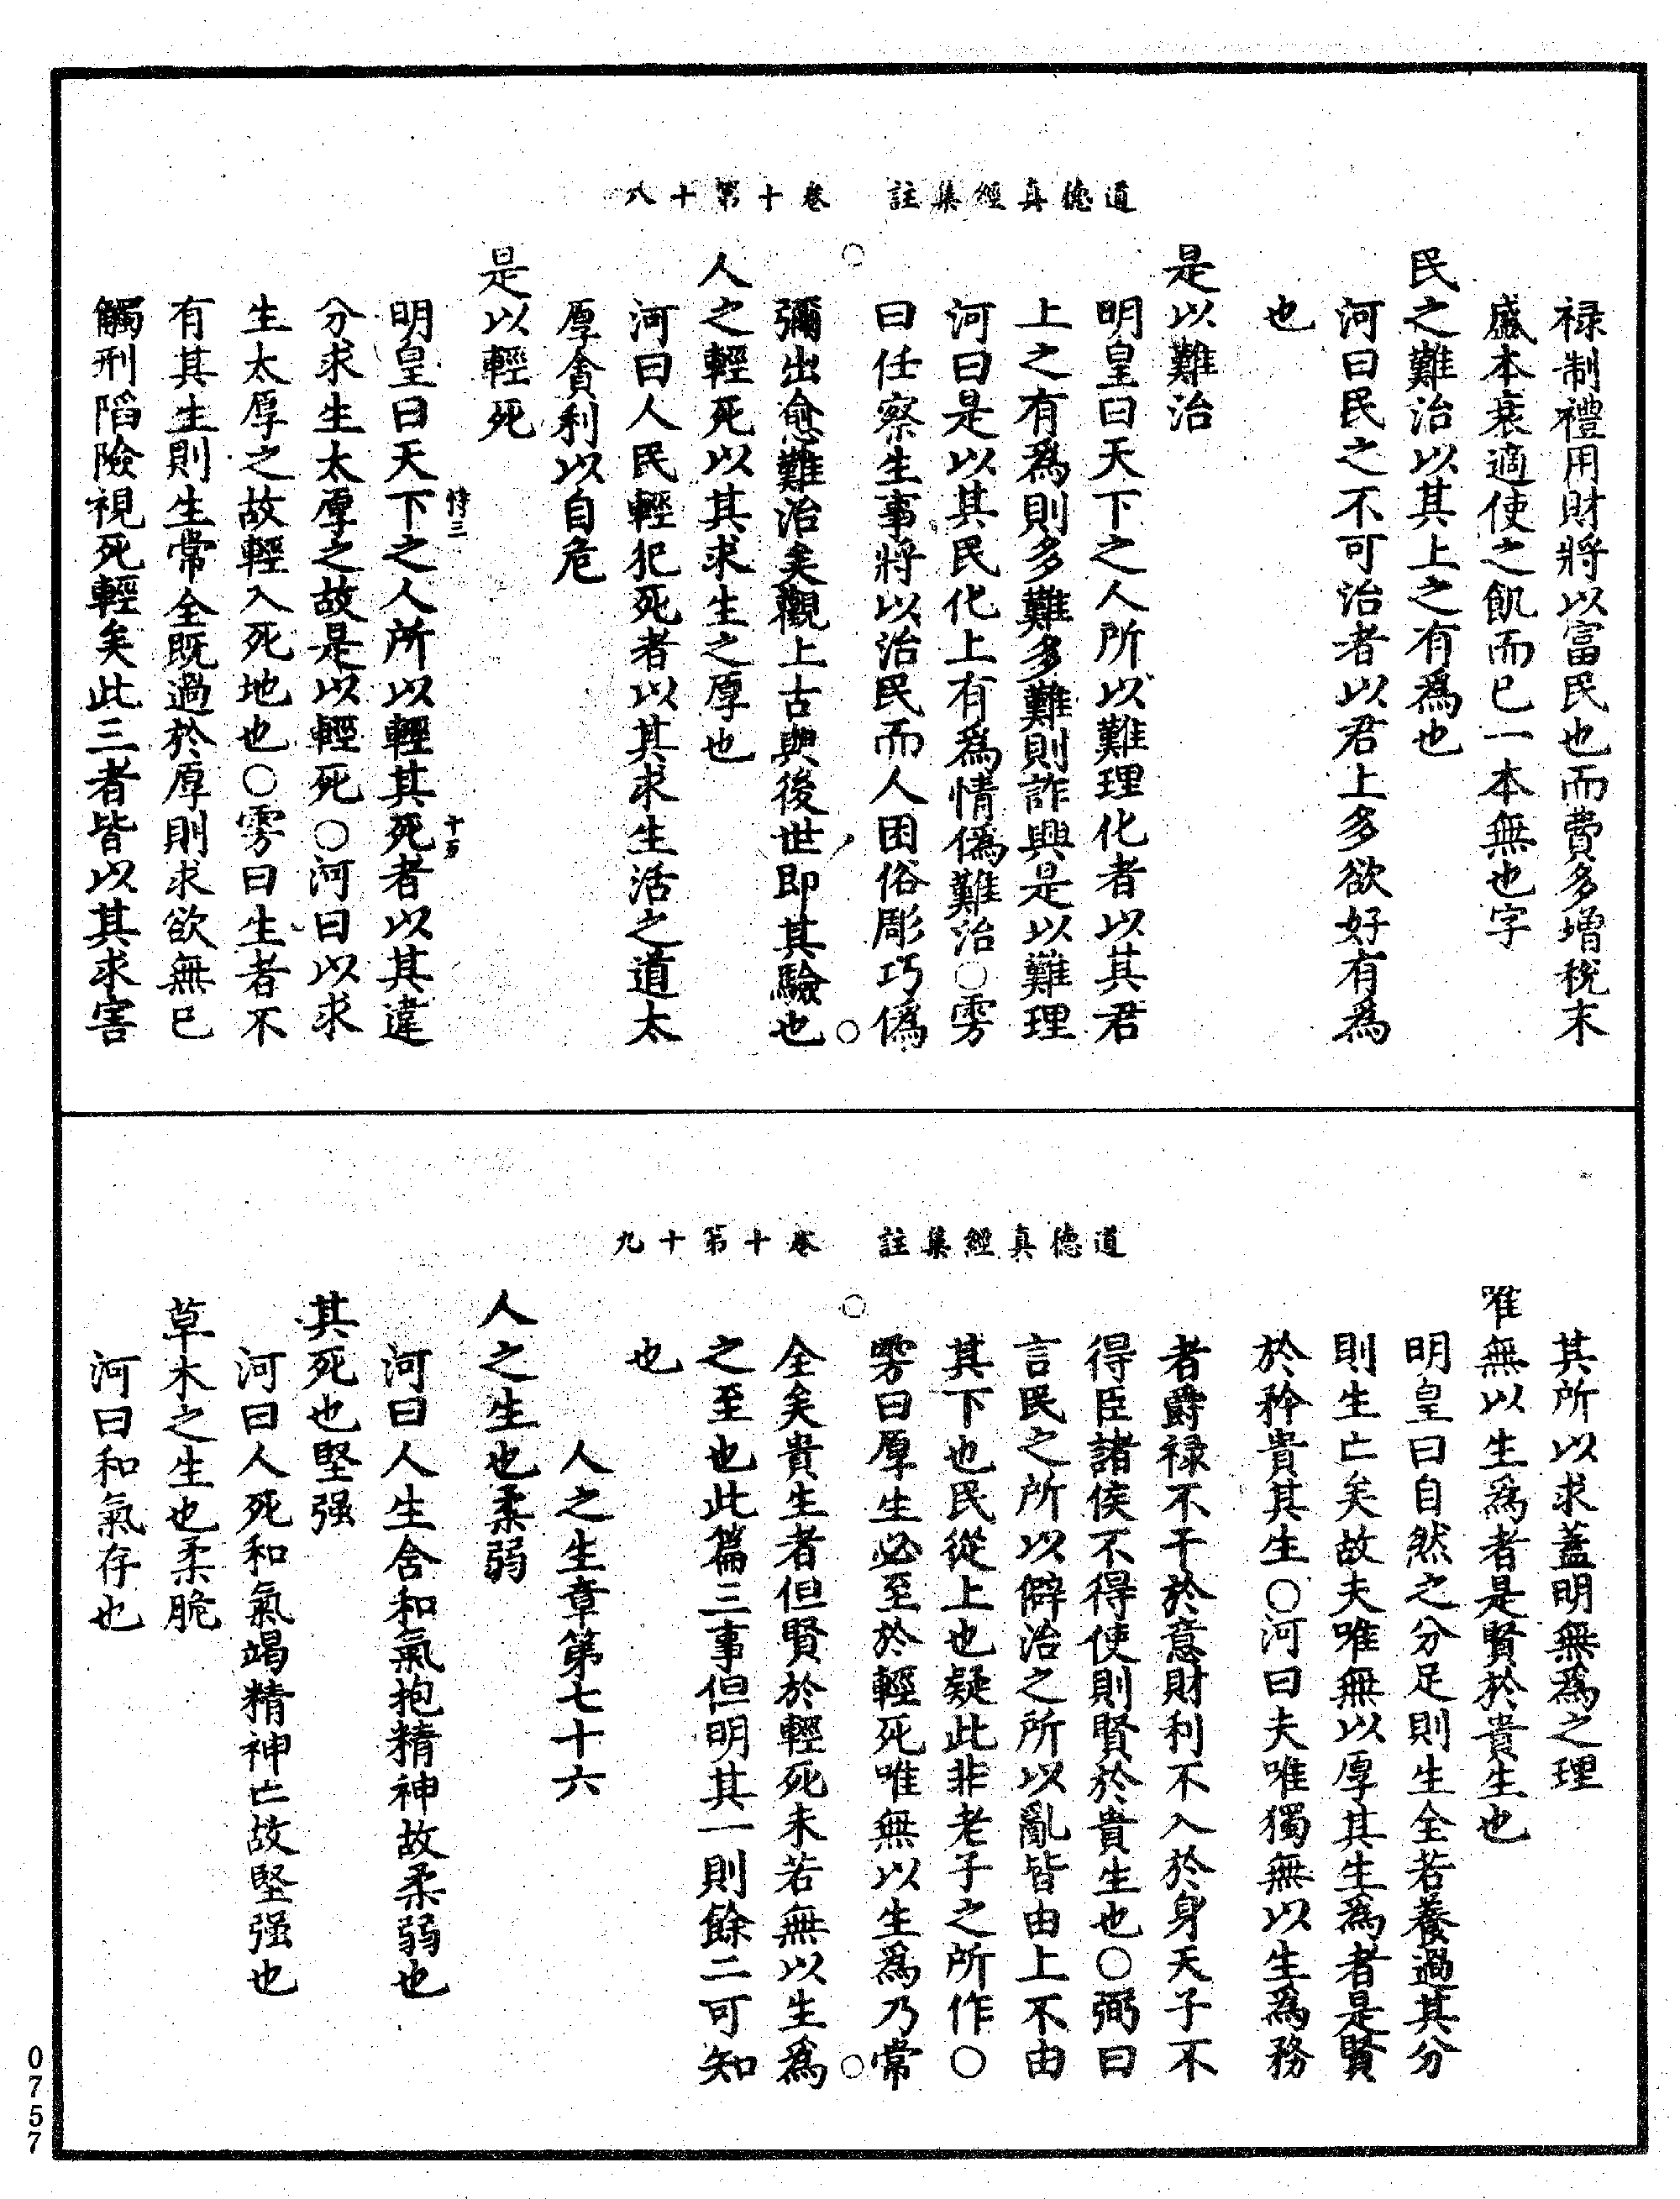 道德真經集註　卷十第十八
祿制禮用財將以富民也而費多增稅末
盛本衰適使之飢而已一本無也字
民之難治以其上之有爲也
河曰民之不可治者以君上多欲好有爲
也
是以難治
明皇曰天下之人所以難理化者以其君
上之有爲則多難多難則詐興是以難理
河曰是以其民化上有爲情僞難治○雱
曰任察生事將以治民而人困俗彫巧僞
彌出愈難治矣觀上古與後世即其驗也
人之輕死以其求生之厚也
河曰人民輕犯死者以其求生活之道太
厚貪利以自危
是以輕死
明皇曰天下之人所以輕其死者以其違
恃三
十万
分求生太厚之故是以輕死○河曰以求
生太厚之故輕入死地也○雱曰生者不
有其生則生常全既過於厚則求欲無已
觸刑陷險視死輕矣此三者皆以其求害
道德真經集註　卷十第十九
其所以求蓋明無爲之理
唯無以生爲者是賢於貴生也
明皇曰自然之分足則生全若養過其分
則生亡矣故夫唯無以厚其生爲者是賢
於矜貴其生○河曰夫唯獨無以生爲務
者爵祿不干於意財利不入於身天子不
得臣諸侯不得使則賢於貴生也○弼曰
言民之所以僻治之所以亂皆由上不由
其下也民從上也疑此非老子之所作○
雱曰厚生必至於輕死唯無以生爲乃常
全矣貴生者但賢於輕死未若無以生爲
之至也此篇三事但明其一則餘二可知
也
人之生章第七十六
人之生也柔弱
河曰人生含和氣抱精神故柔弱也
其死也堅强
河曰人死和氣竭精神亡故堅强也
草木之生也柔脆
河曰和氣存也
0757